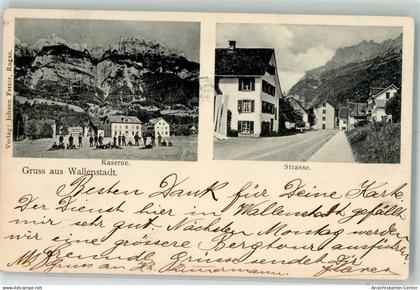 Verlag: Johann Fetzer, Ragaz.
Kaserne.
Strasse.
Gruss aus Wallenstadt.
Besten Dank für Deine Karte.
Der Dienst hier in Wallenstadt gefällt
mir sehr gut. Nächsten Montag werden
wir eine grössere Bergtour ausführen
Als Freundl. Grüsse sendet Dir
Gruss an Hr. Zimmermann.
Ansichtskarten-Center